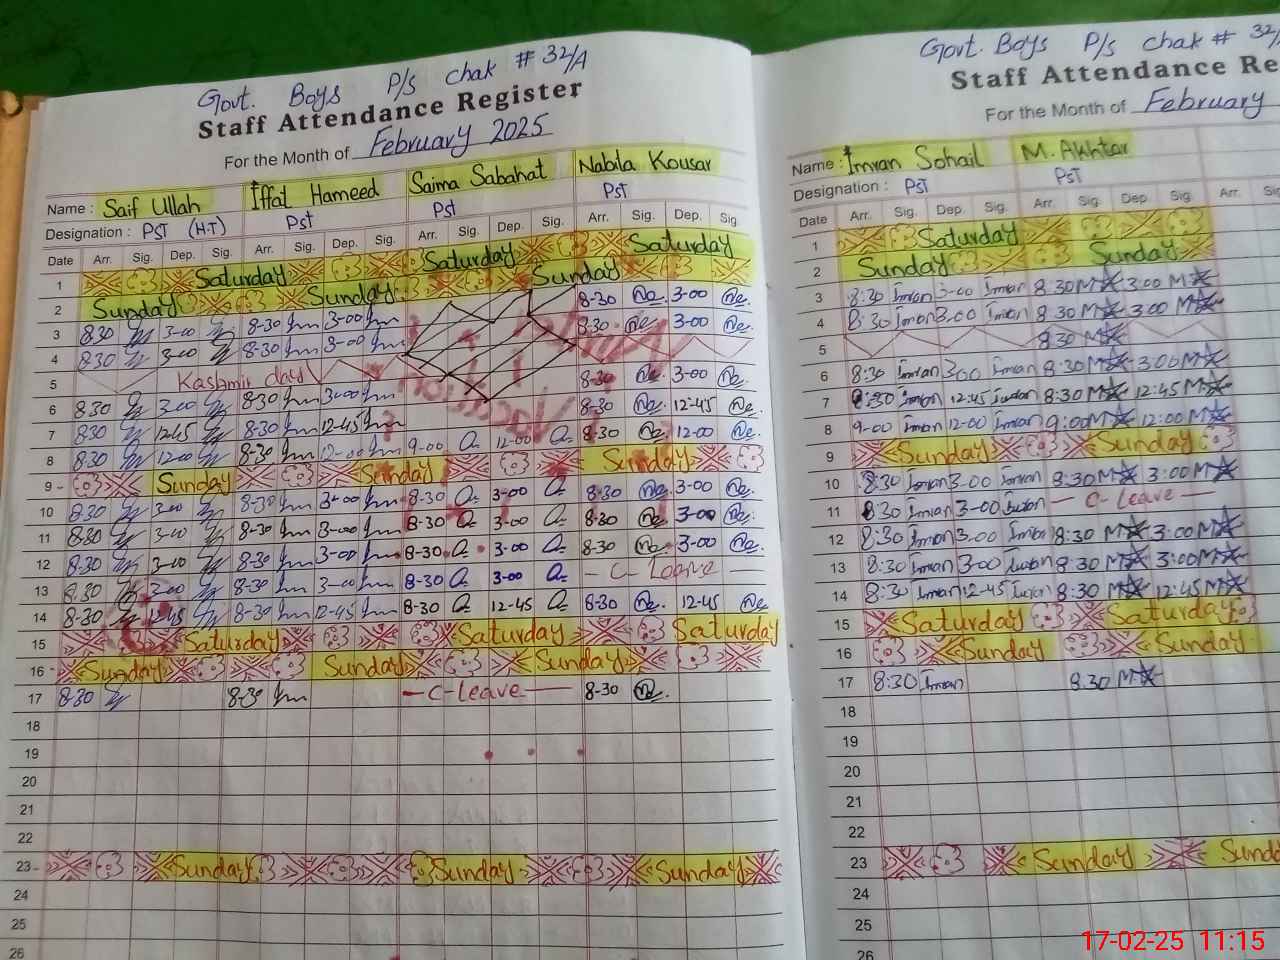 Govt. Boys P/s chak # 32/A
Staff Attendance Register
For the Month of February 2025
Name : Saif Ullah Iffat Hameed Saima Sabahat Nabila Kousar
Designation : PST (H.T) Pst Pst PST
Date Arr. Sig. Dep. Sig. Arr. Sig. Dep. Sig. Arr. Sig. Dep. Sig. Arr. Sig. Dep. Sig.
1 Saturday Saturday Saturday
2 Sunday Sunday Sunday
3 8:30 3-00 8-30 3-00 8-30 3-00
4 8:30 3-00 8-30 3-00 8:30 3-00
5 Kashmir day
6 8:30 3-00 8-30 3-00 8-30 3-00
7 8:30 12:45 8-30 12:45 8-30 12-45
8 8:30 12-00 8-30 12-00 9-00 12-00 8-30 12-00
9 Sunday Sunday Sunday
10 8:30 3-00 8-30 3-00 8-30 3-00 8-30 3-00
11 8:30 3-00 8-30 3-00 8-30 3-00 8-30 3-00
12 8-30 3-00 8-30 3-00 8-30 3-00 8-30 3-00
13 8.30 3-00 8-30 3-00 8-30 3-00 - C- Leave -
14 8-30 12-45 8-30 12-45 8-30 12-45 8-30 12-45
15 Saturday Saturday Saturday
16 Sunday Sunday Sunday
17 8-30 8-30 - C-leave - 8-30
18
19
20
21
22
23 Sunday Sunday Sunday
24
25
26
Govt. Boys P/s chak # 32/
Staff Attendance Re
For the Month of February
Name : Imran Sohail M. Akhtar
Designation : PST PST
Date Arr. Sig. Dep. Sig. Arr. Sig. Dep. Sig. Arr.
1 Saturday
2 Sunday Sunday
3 8:30 Imran 3-00 Imran 8:30 3:00
4 8:30 Imran 3.00 Imran 8:30 3:00
5 8:30
6 8:30 Imran 3.00 Imran 8:30 3:00
7 8:30 Imran 12:45 Imran 8:30 12:45
8 9-00 Imran 12-00 Imran 9:00 12:00
9 Sunday Sunday
10 8:30 Imran 3.00 Imran 8:30 3:00
11 8:30 Imran 3-00 Imran - C- Leave -
12 8:30 Imran 3.00 Imran 8:30 3:00
13 8:30 Imran 3-00 Imran 8:30 3:00
14 8:30 Imran 12-45 Imran 8:30 12:45
15 Saturday Saturday
16 Sunday Sunday
17 8:30 Imran 8.30
18
19
20
21
22
23 Sunday Sund
24
25
26
17-02-25 11:15